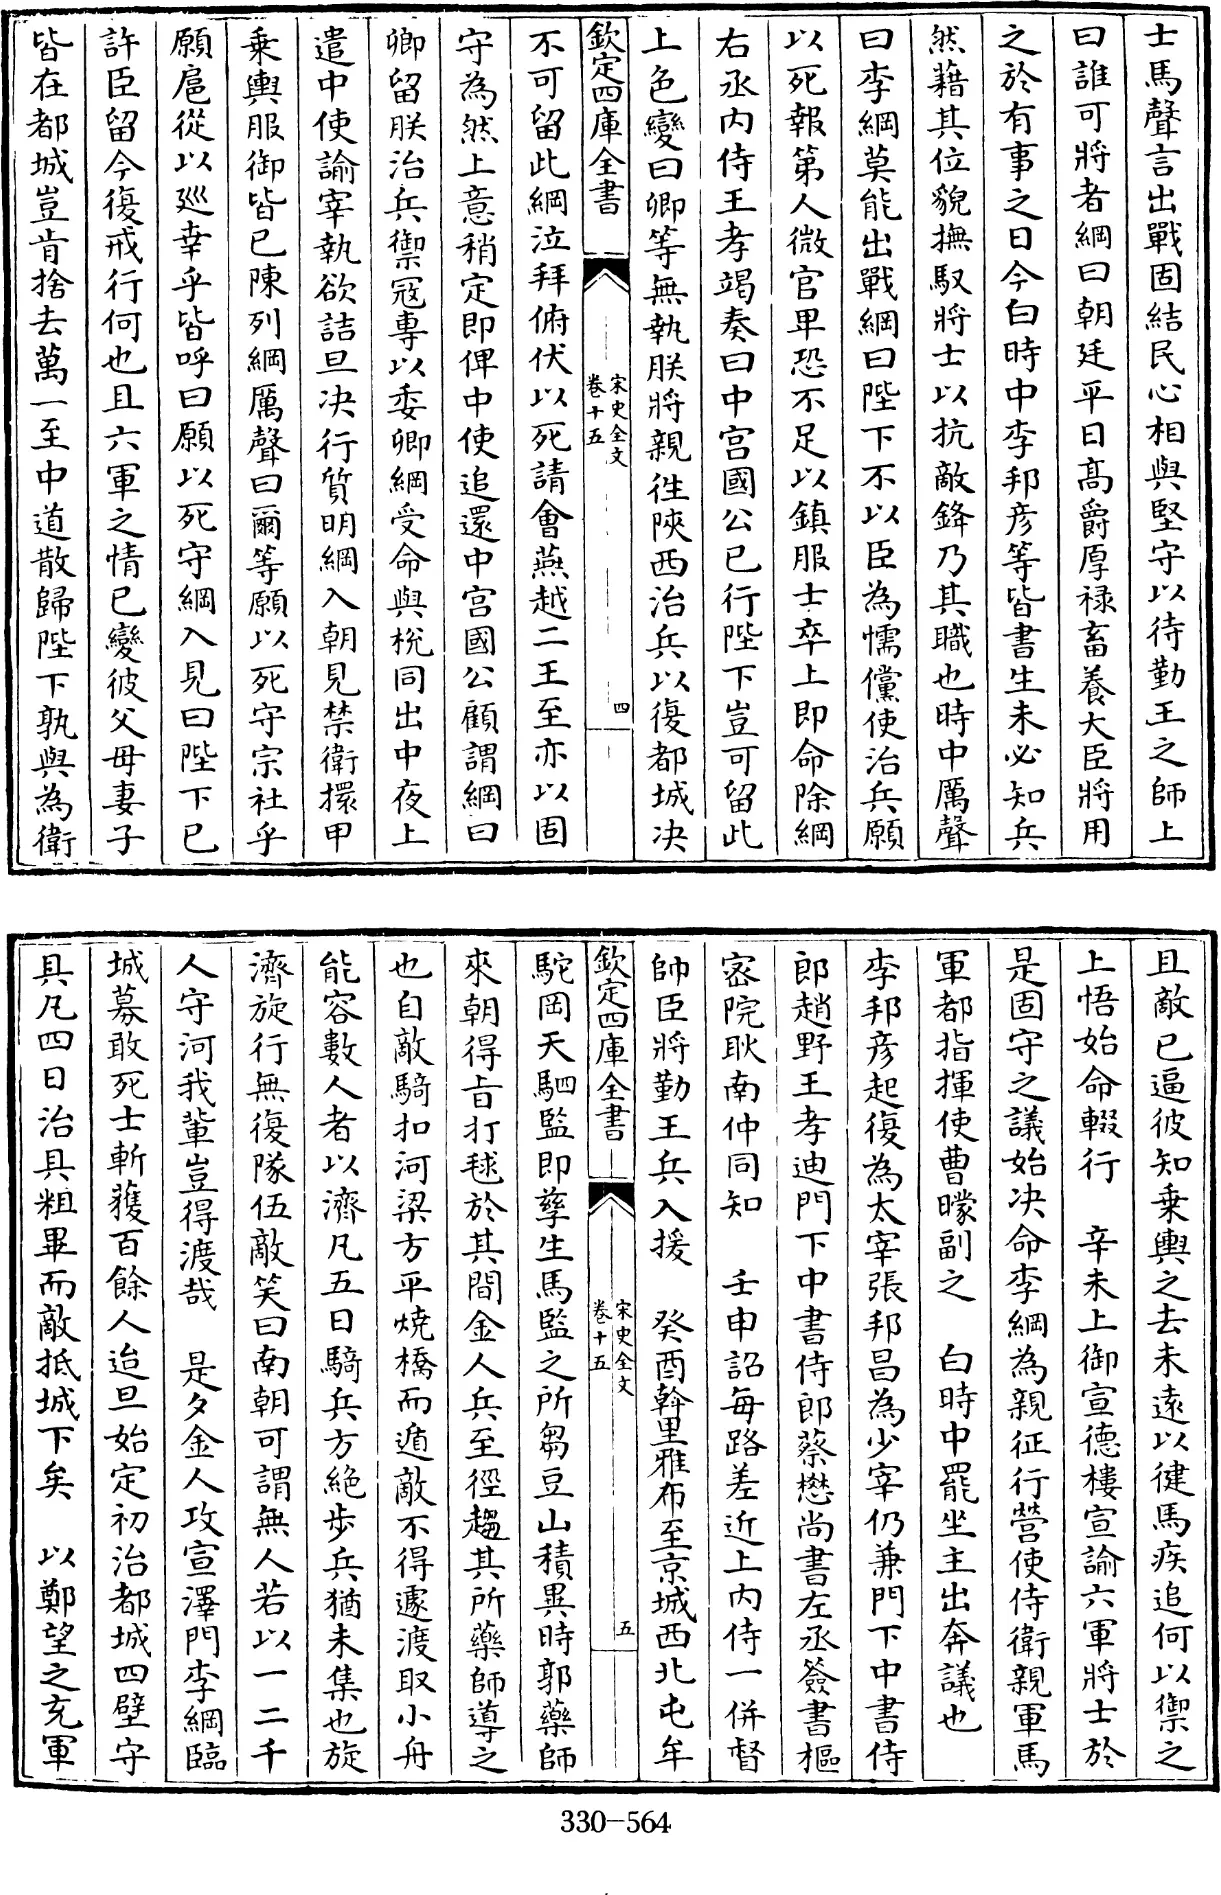 士馬聲言出戰固結民心相與堅守以待勤王之師上
曰誰可將者綱曰朝廷平日髙爵厚禄畜養大臣將用
之於有事之日今白時中李邦彦等皆書生未必知兵
然藉其位貌撫馭將士以抗敵鋒乃其職也時中厲聲
曰李綱莫能出戰綱曰陛下不以臣為懦儻使治兵願
以死報第人微官卑恐不足以鎮服士卒上即命除綱
右丞内侍王孝竭奏曰中宫國公已行陛下豈可留此
上色變曰卿等無執朕將親徃陜西治兵以復都城决
欽定四庫全書
宋史全文
卷十五
四
不可留此綱泣拜俯伏以死請會燕越二王至亦以固
守為然上意稍定即俾中使追還中宫國公顧謂綱曰
卿留朕治兵禦冦專以委卿綱受命與梲同出中夜上
遣中使諭宰執欲詰旦决行質明綱入朝見禁衛擐甲
乗輿服御皆已陳列綱厲聲曰爾等願以死守宗社乎
願扈從以廵幸乎皆呼曰願以死守綱入見曰陛下已
許臣留今復戒行何也且六軍之情已變彼父母妻子
皆在都城豈肯捨去萬一至中道散歸陛下孰與為衛
且敵已逼彼知乗輿之去未遠以健馬疾追何以禦之
上悟始命輟行　辛未上御宣德樓宣諭六軍將士於
是固守之議始决命李綱為親征行營使侍衛親軍馬
軍都指揮使曹曚副之　白時中罷坐主出奔議也
李邦彦起復為太宰張邦昌為少宰仍兼門下中書侍
郎趙野王孝迪門下中書侍郎蔡懋尚書左丞簽書樞
宻院耿南仲同知　壬申詔毎路差近上内侍一併督
帥臣將勤王兵入援　癸酉斡里雅布至京城西北屯牟
欽定四庫全書
宋史全文
卷十五
五
駝岡天駟監即孳生馬監之所芻豆山積異時郭藥師
來朝得㫖打毬於其間金人兵至徑趨其所藥師導之
也自敵騎扣河梁方平燒橋而遁敵不得遽渡取小舟
能容數人者以濟凡五日騎兵方絶步兵猶未集也旋
濟旋行無復隊伍敵笑曰南朝可謂無人若以一二千
人守河我輩豈得渡哉　是夕金人攻宣澤門李綱臨
城募敢死士斬獲百餘人迨旦始定初治都城四壁守
具凡四日治具粗畢而敵抵城下矣　以鄭望之充軍
330-564